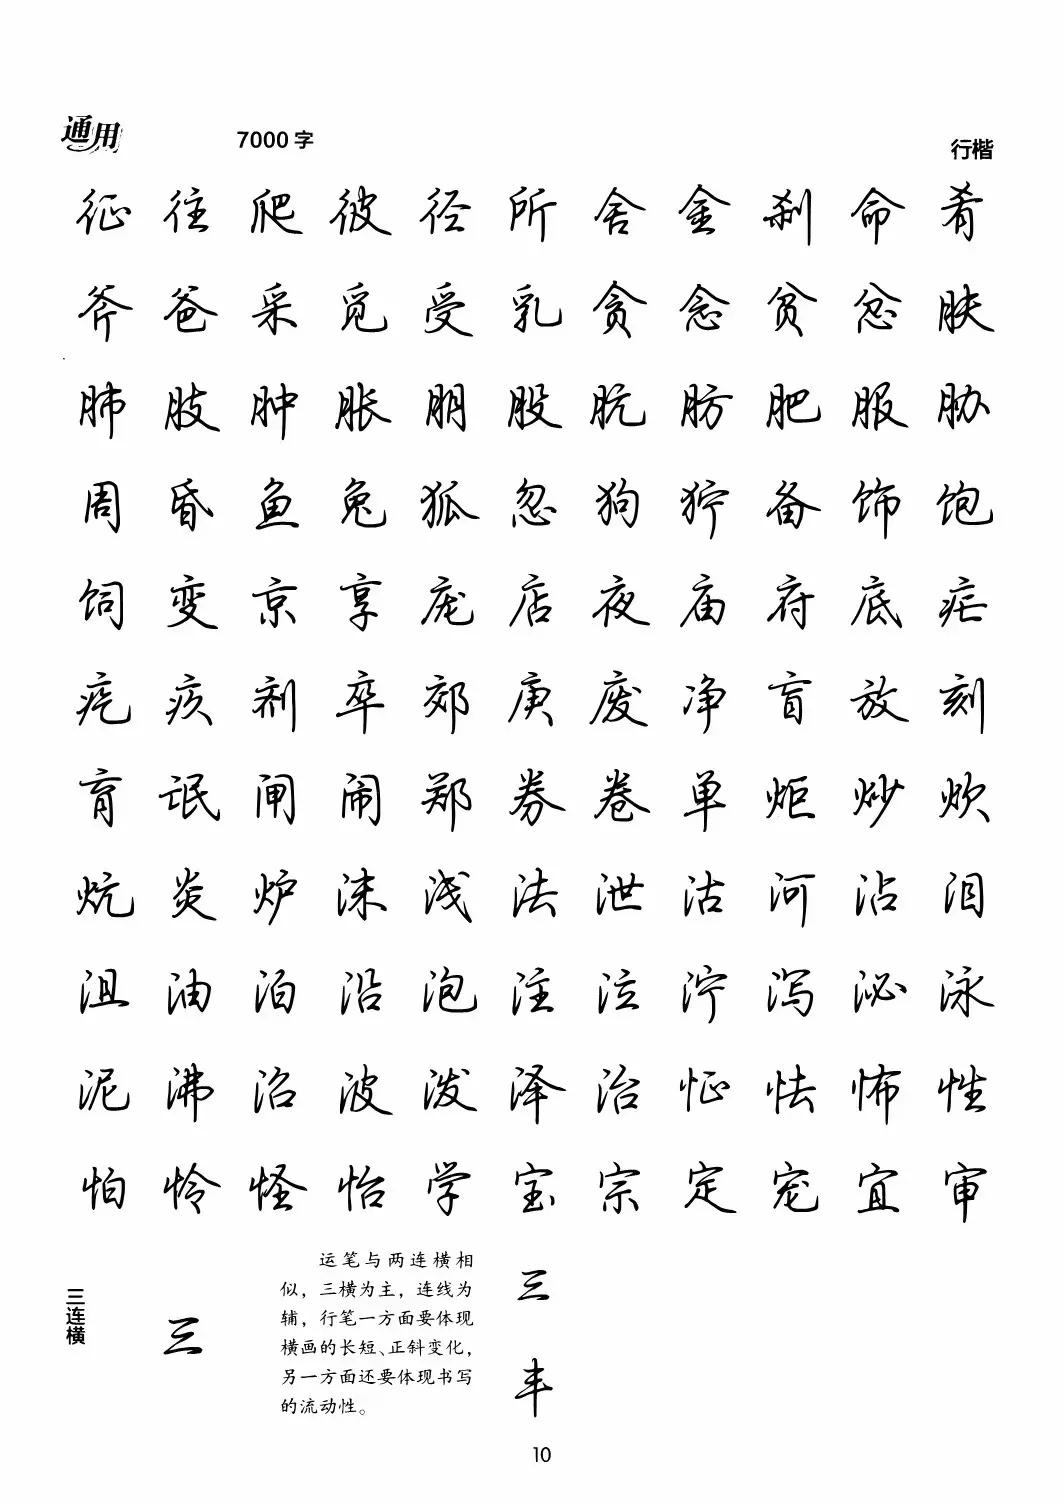 通用 7000字 行楷
征往爬彼径所舍金刹命肴
斧爸采觅受乳贪念贫忿肤
肺肢肿胀朋股肮肪肥服胁
周昏鱼兔狐忽狗狞备饰饱
饲变京享庞店夜庙府底疟
疙疚剂卒郊庚废净盲放刻
育氓闸闹郑券卷单炬炒炊
炕炎炉沫浅法泄沽河沾泪
沮油泊沿泡注泣泞泻泌泳
泥沸沼波泼泽治怔怯怖性
怕怜怪怡学宝宗定宠宜审
三连横
三
运笔与两连横相
似，三横为主，连线为
辅，行笔一方面要体现
横画的长短、正斜变化，
另一方面还要体现书写
的流动性。
三
丰
10